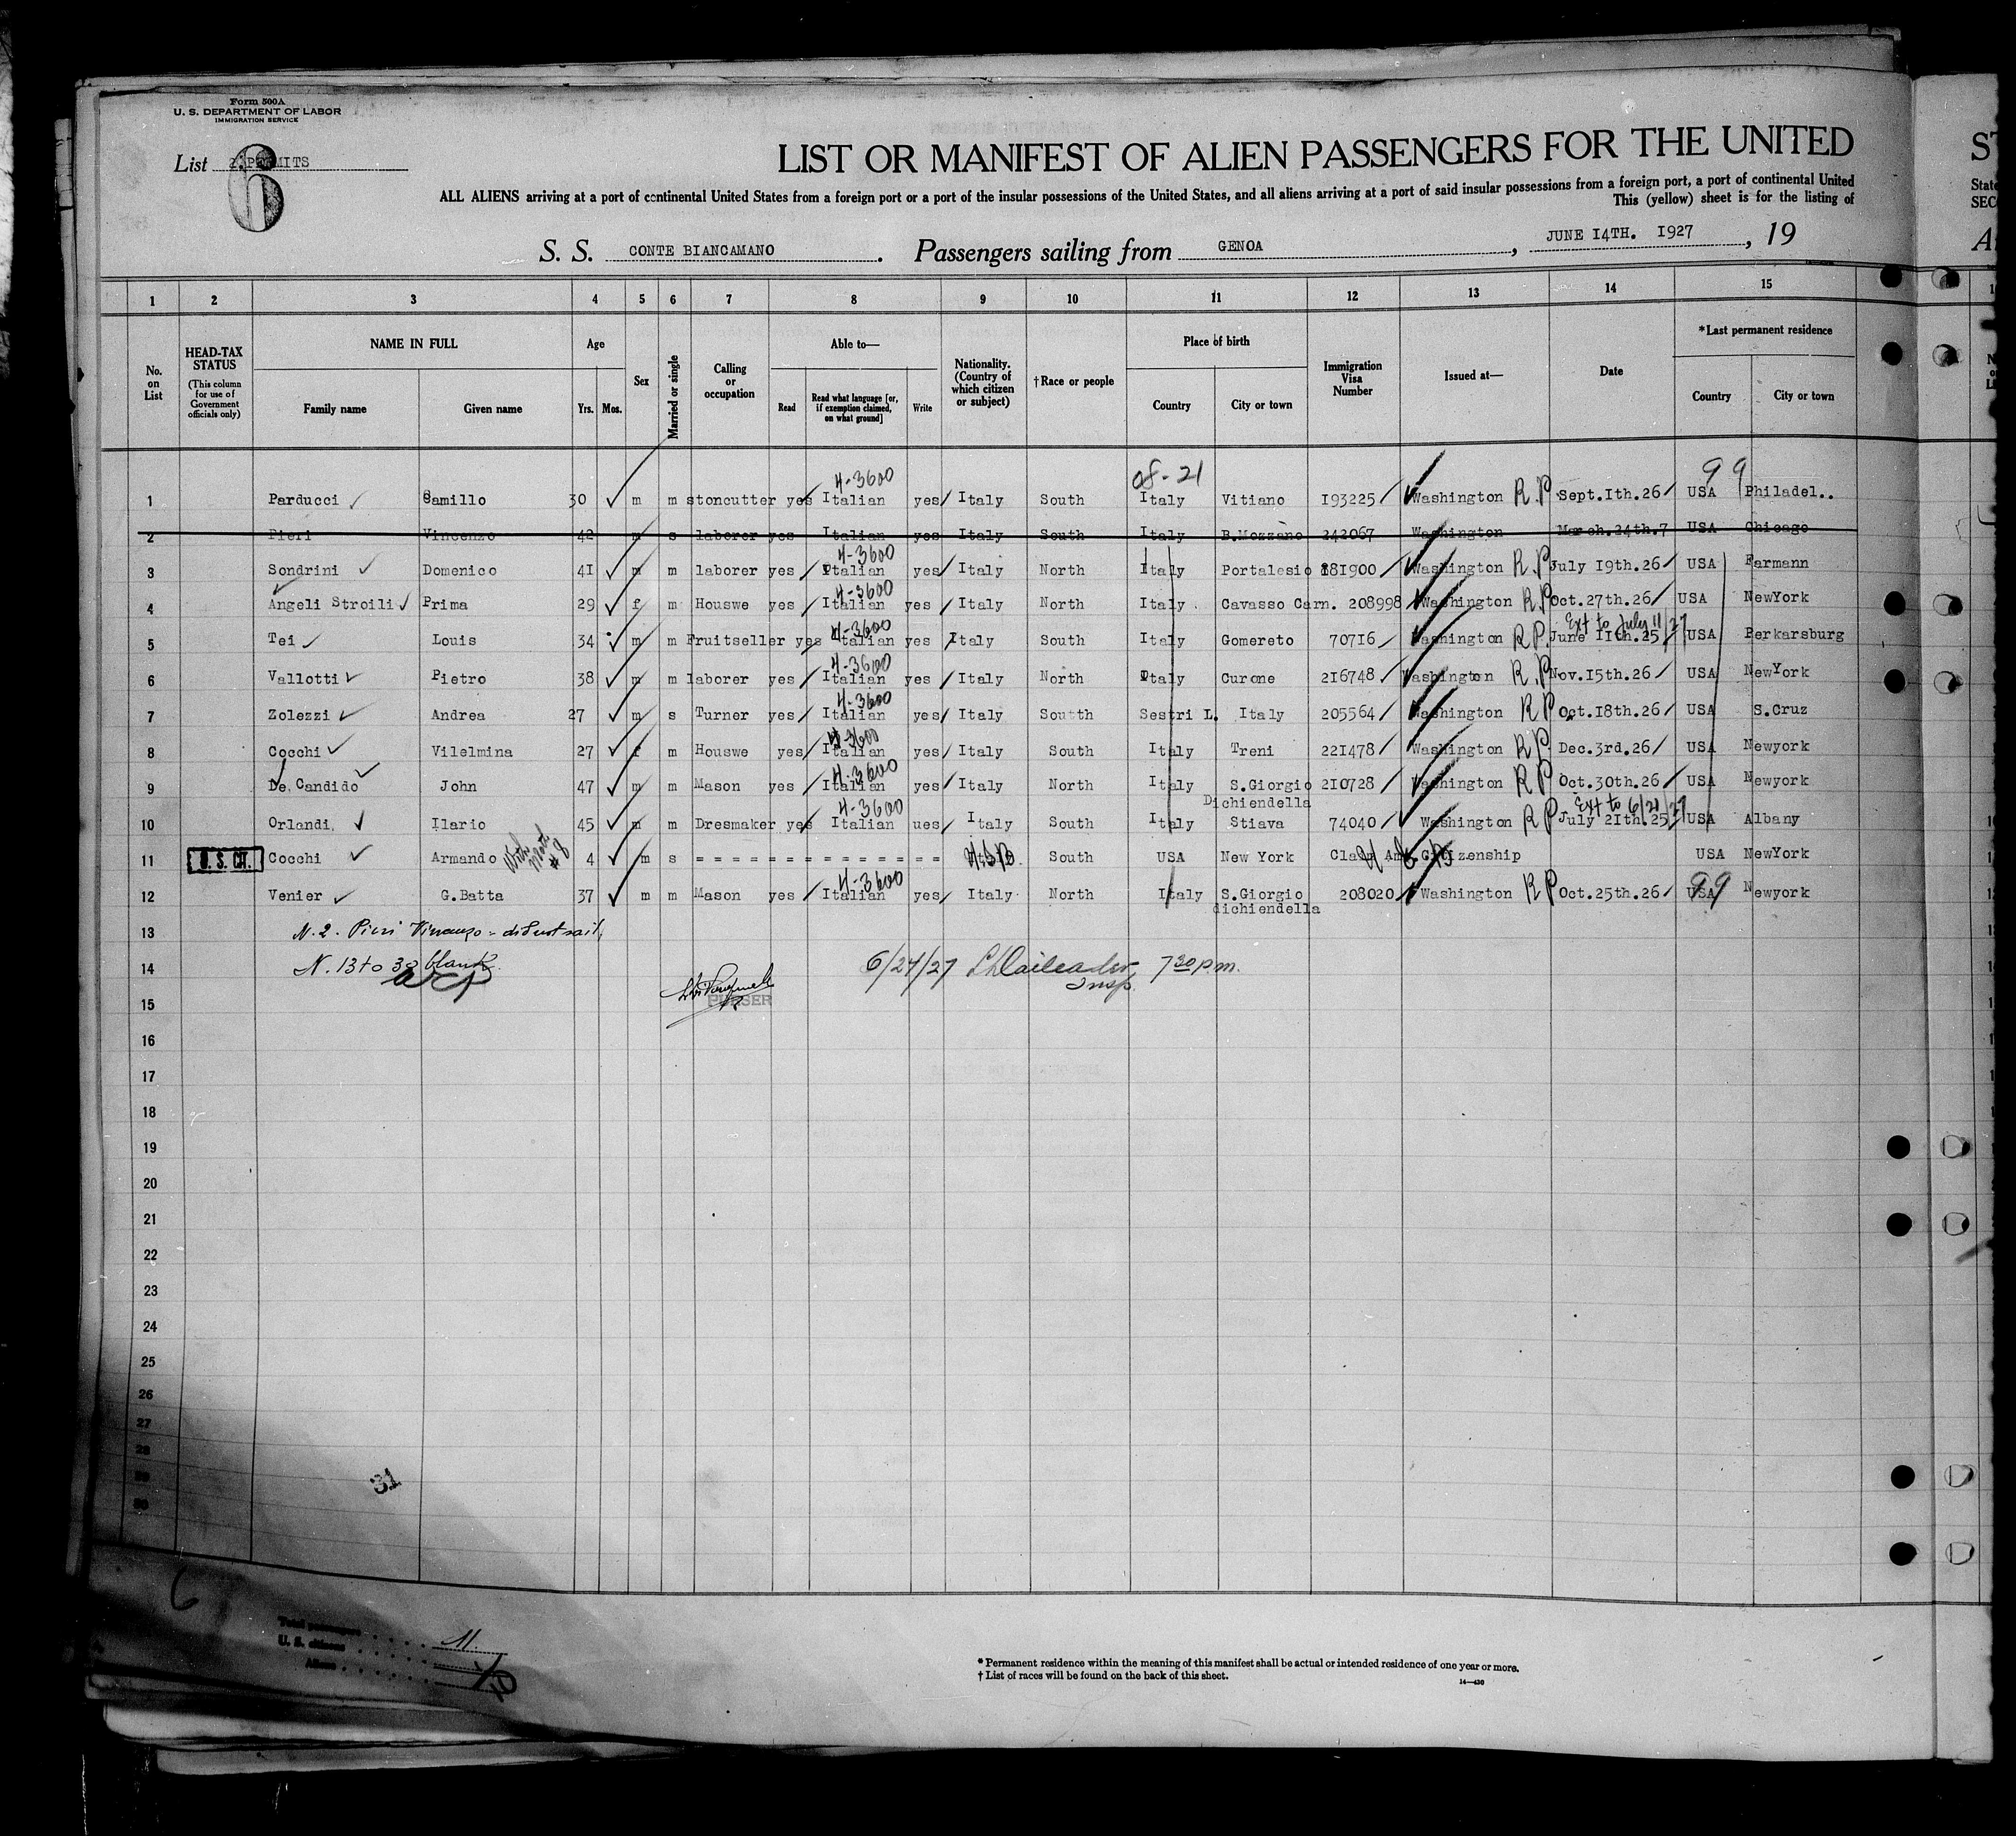 Form 500A
U. S. DEPARTMENT OF LABOR
IMMIGRATION SERVICE
List 2 PERMITS
6
LIST OR MANIFEST OF ALIEN PASSENGERS FOR THE UNITED
ALL ALIENS arriving at a port of continental United States from a foreign port or a port of the insular possessions of the United States, and all aliens arriving at a port of said insular possessions from a foreign port, a port of continental United
This (yellow) sheet is for the listing of
S. S. CONTE BIANCAMANO. Passengers sailing from GENOA, JUNE I4TH. I927, 19
ST
State
SEC
1 2 3 4 5 6 7 8 9 10 11 12 13 14 15
No. on List
HEAD-TAX STATUS
(This column for use of Government officials only)
NAME IN FULL
Family name Given name
Age
Yrs. Mos.
Sex
Married or single
Calling or occupation
Able to—
Read
Read what language [or, if exemption claimed, on what ground]
Write
Nationality. (Country of which citizen or subject)
†Race or people
Place of birth
Country City or town
Immigration Visa Number
Issued at—
Date
*Last permanent residence
Country City or town
4-3600 08-21 99
1 Parducci Camillo 30 m m stoncutter yes Italian yes Italy South Italy Vitiano I93225 Washington R.P. Sept.Ith.26 USA Philadel..
2 Pieri Vincenzo 42 m s laborer yes Italian yes Italy South Italy B.Mozzano 242067 Washington March.24th.7 USA Chicago
4-3600
3 Sondrini Domenico 4I m m laborer yes Italian yes Italy North Italy Portalesio I8I900 Washington R.P. July I9th.26 USA Farmann
4-3600
4 Angeli Stroili Prima 29 f m Houswe yes Italian yes Italy North Italy Cavasso Carn. 208998 Washington R.P. Oct.27th.26 USA NewYork
4-3600 Ext to July 11/27
5 Tei Louis 34 m m Fruitseller yes Italian yes Italy South Italy Gomereto 707I6 Washington R.P. June IIth.25 USA Perkarsburg
4-3600
6 Vallotti Pietro 38 m m laborer yes Italian yes Italy North Italy Curone 2I6748 Washington R.P. Nov.I5th.26 USA NewYork
4-3600
7 Zolezzi Andrea 27 m s Turner yes Italian yes Italy Soutth Sestri L. Italy 205564 Washington R P Oct.I8th.26 USA S.Cruz
4-3600
8 Cocchi Vilelmina 27 f m Houswe yes Italian yes Italy South Italy Treni 22I478 Washington R P Dec.3rd.26 USA Newyork
4-3600
9 De Candido John 47 m m Mason yes Italian yes Italy North Italy S.Giorgio Dichiendella 2I0728 Washington R P Oct.30th.26 USA Newyork
4-3600 Ext to 6/21/27
10 Orlandi, Ilario 45 m m Dresmaker yes Italian ues Italy South Italy Stiava 74040 Washington R P July 2Ith.25 USA Albany
11 U. S. CIT. Cocchi Armando With Mother #8 4 m s - - - - - - - - - - - - - South USA New York Claim Am. Citizenship USA NewYork
4-3600 99
12 Venier G.Batta 37 m m Mason yes Italian yes Italy North Italy S.Giorgio dichiendella 208020 Washington R P Oct.25th.26 USA Newyork
13 N. 2. Pieri Vincenzo - did not sail,
14 N. 13 to 30 blank. 6/24/27 Insp. 7 30 p.m.
15 PURSER
16
17
18
19
20
21
22
23
24
25
26
27
28
29
30
31
6
Total passengers . . . . 11.
U. S. citizens . . . . .
Aliens . . . . . . 10
* Permanent residence within the meaning of this manifest shall be actual or intended residence of one year or more.
† List of races will be found on the back of this sheet.
14—430